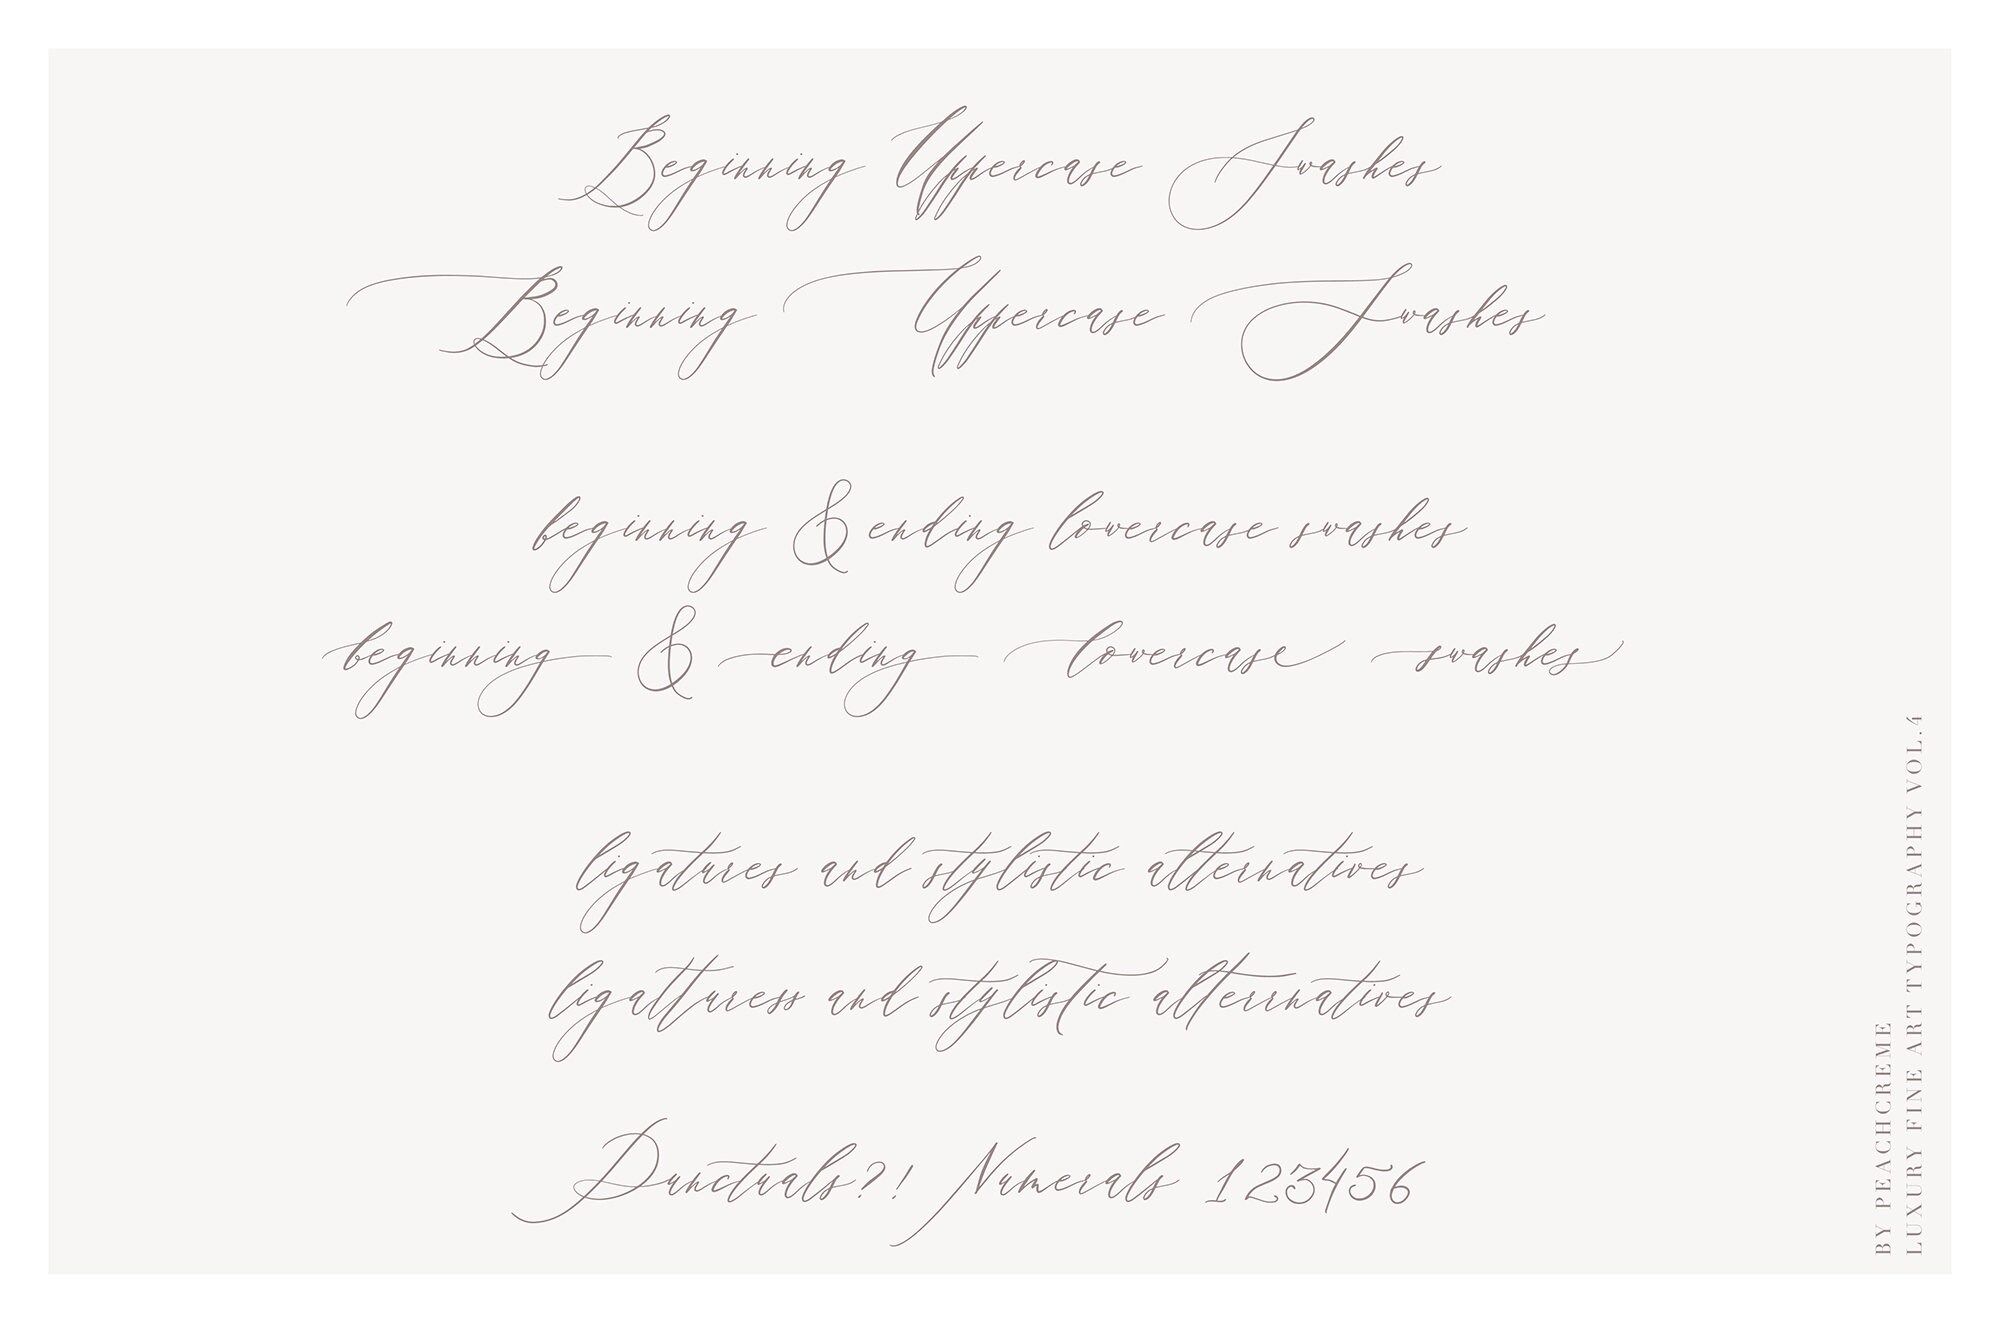 Beginning Uppercase Swashes
Beginning Uppercase Swashes
beginning & ending lowercase swashes
beginning & ending lowercase swashes
ligatures and stylistic alternatives
ligatturess and stylistic alterrnatives
Punctuals?! Numerals 123456
BY PEACHCREME
LUXURY FINE ART TYPOGRAPHY VOL.4